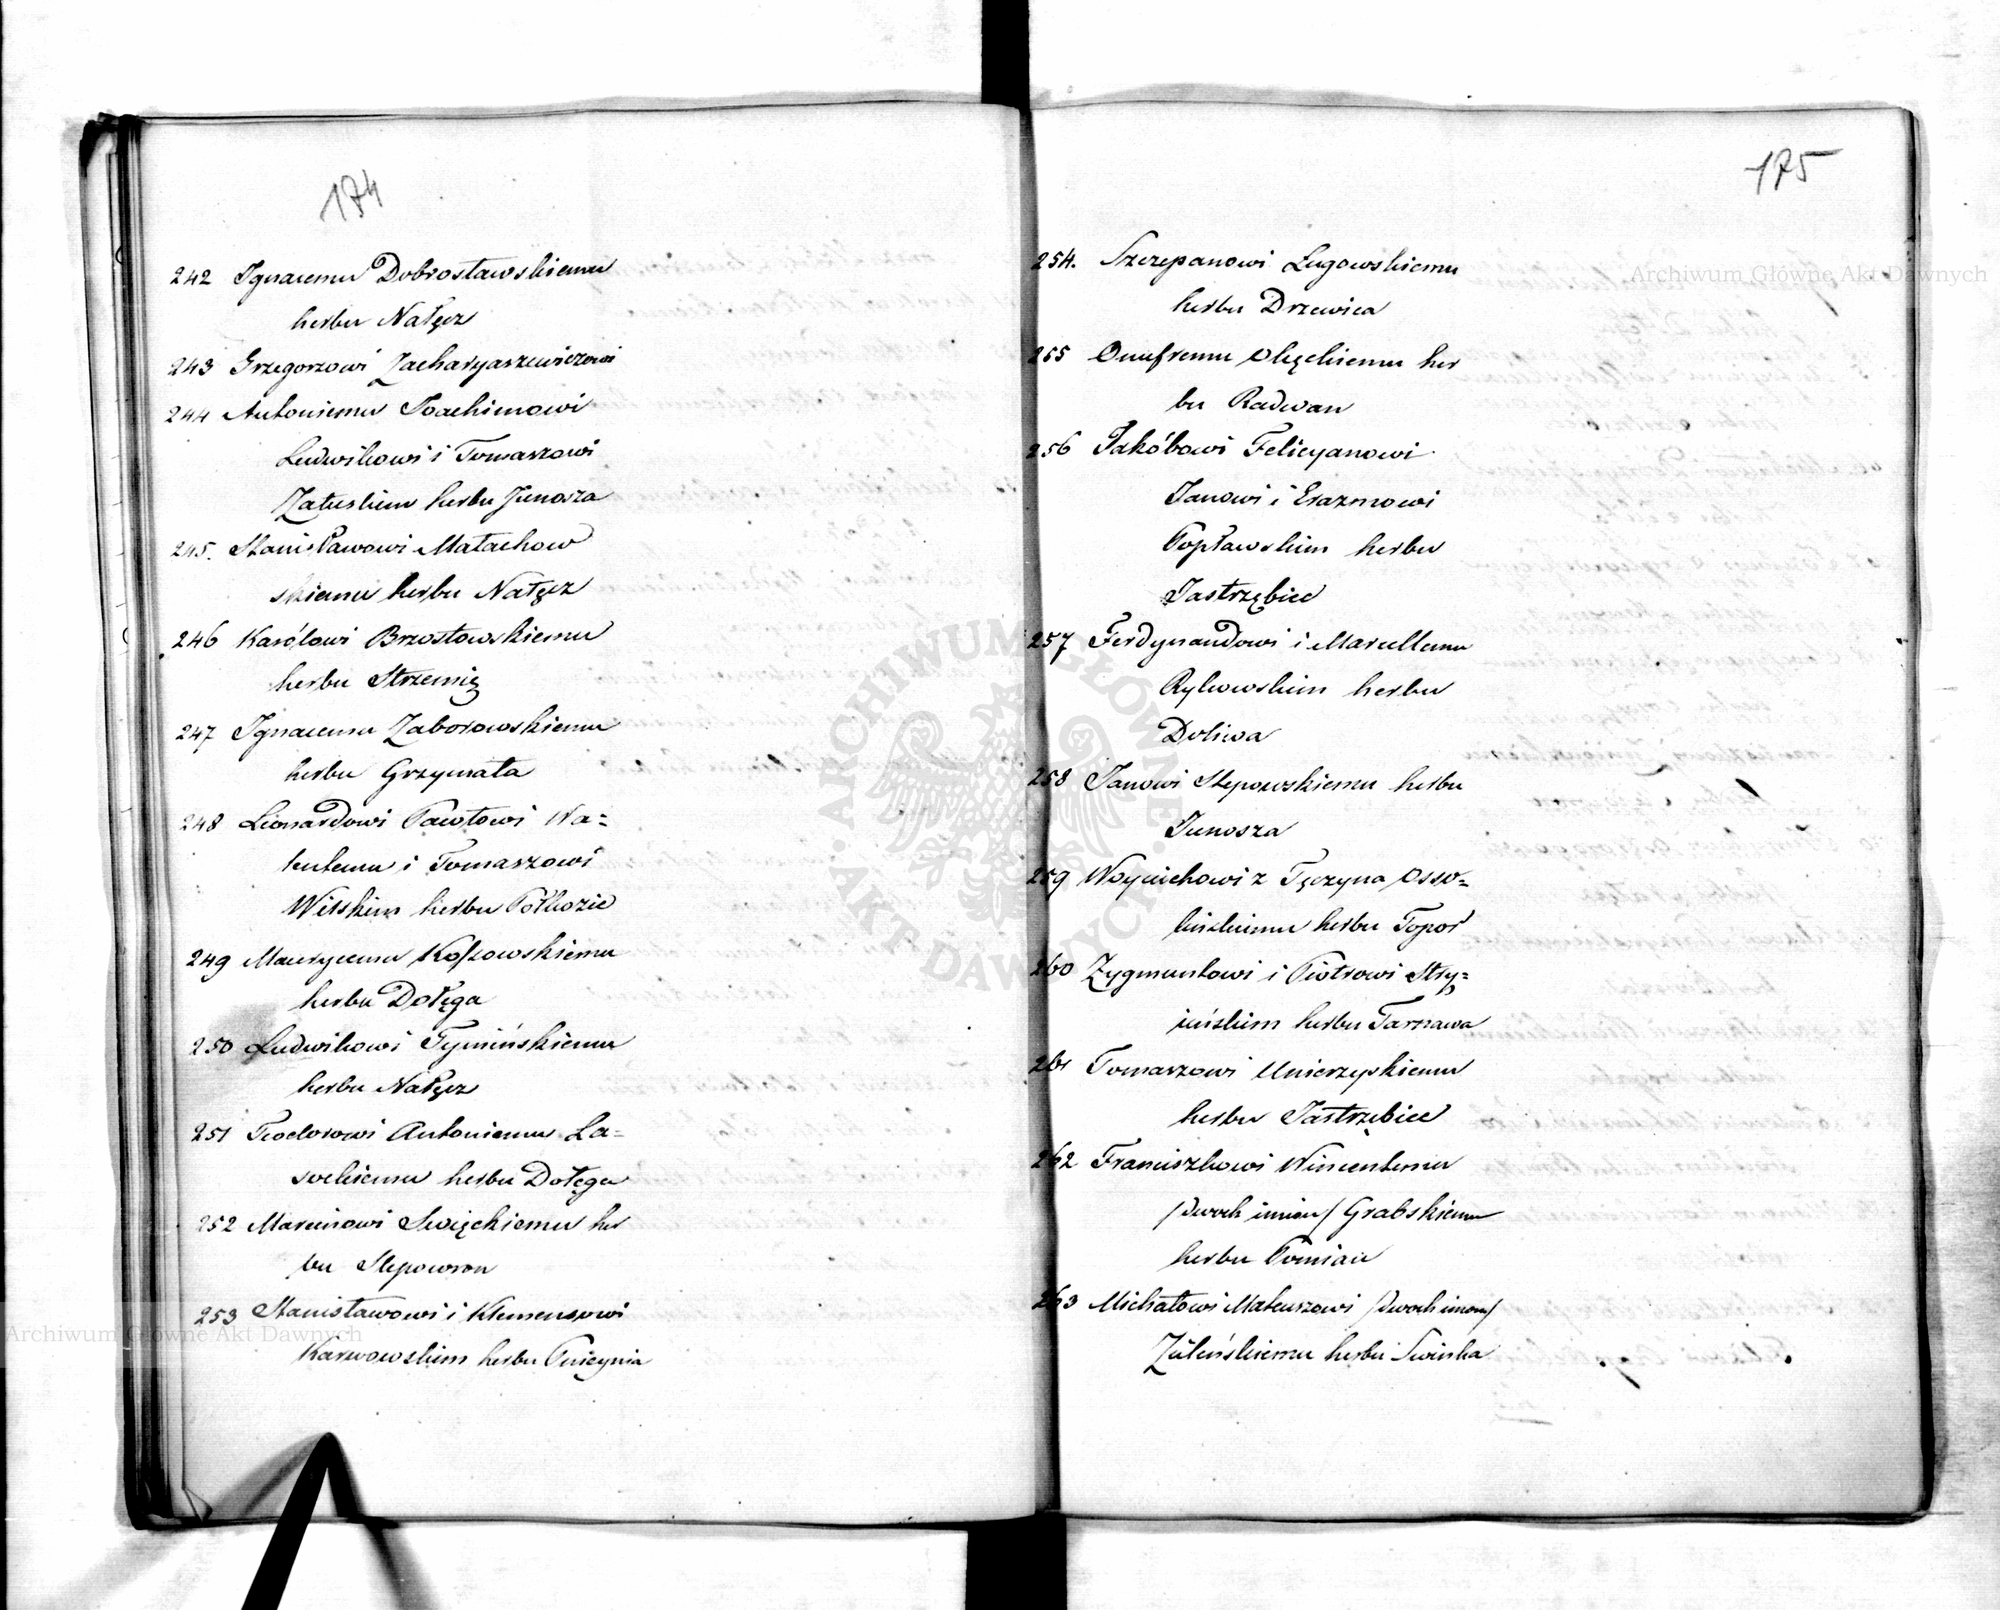 174
242 Ignacemu Dobrosławskiemu
herbu Nałęcz
243 Grzegorzowi Zacharyaszewiczowi
244 Antoniemu Joachimowi
Ludwikowi i Tomaszowi
Załuskim herbu Junosza
245. Stanisławowi Małachow
skiemu herbu Nałęcz
246 Karólowi Brzostowskiemu
herbu Strzemię
247 Ignacemu Zaborowskiemu
herbu Grzymała
248 Leonardowi Pawłowi Wa=
lentemu i Tomaszowi
Wilskim herbu Półkozic
249 Maurycemu Kossowskiemu
herbu Dołęga
250 Ludwikowi Tymińskiemu
herbu Nałęcz
251 Teodorowi Antoniemu La=
sockiemu herbu Dołęga
252 Marcinowi Swięckiemu her
bu Slepowron
253 Stanisławowi i Klemensowi
Karwowskim herbu Pnieynia
175
254. Szczepanowi Lugowskiemu
herbu Drzewica
255 Onufremu Olęckiemu her
bu Radwan
256 Jakóbowi Felicyanowi
Janowi i Erazmowi
Popławskim herbu
Jastrzębiec
257 Ferdynandowi i Marcellemu
Rykowskim herbu
Doliwa
258 Janowi Slepowskiemu herbu
Junosza
259 Woyciechowi z Tęczyna Osso=
lińskiemu herbu Topor
260 Zygmuntowi i Piotrowi Stry=
ieńskim herbu Tarnawa
261 Tomaszowi Unierzyskiemu
herbu Jastrzębiec
262 Franciszkowi Wincentemu
/dwoch imion/ Grabskiemu
herbu Pomian
263 Michałowi Mateuszowi /dwoch imion/
Zuleńskiemu herbu Swinka
Archiwum Główne Akt Dawnych
Archiwum Główne Akt Dawnych
ARCHIWUM GŁÓWNE AKT DAWNYCH